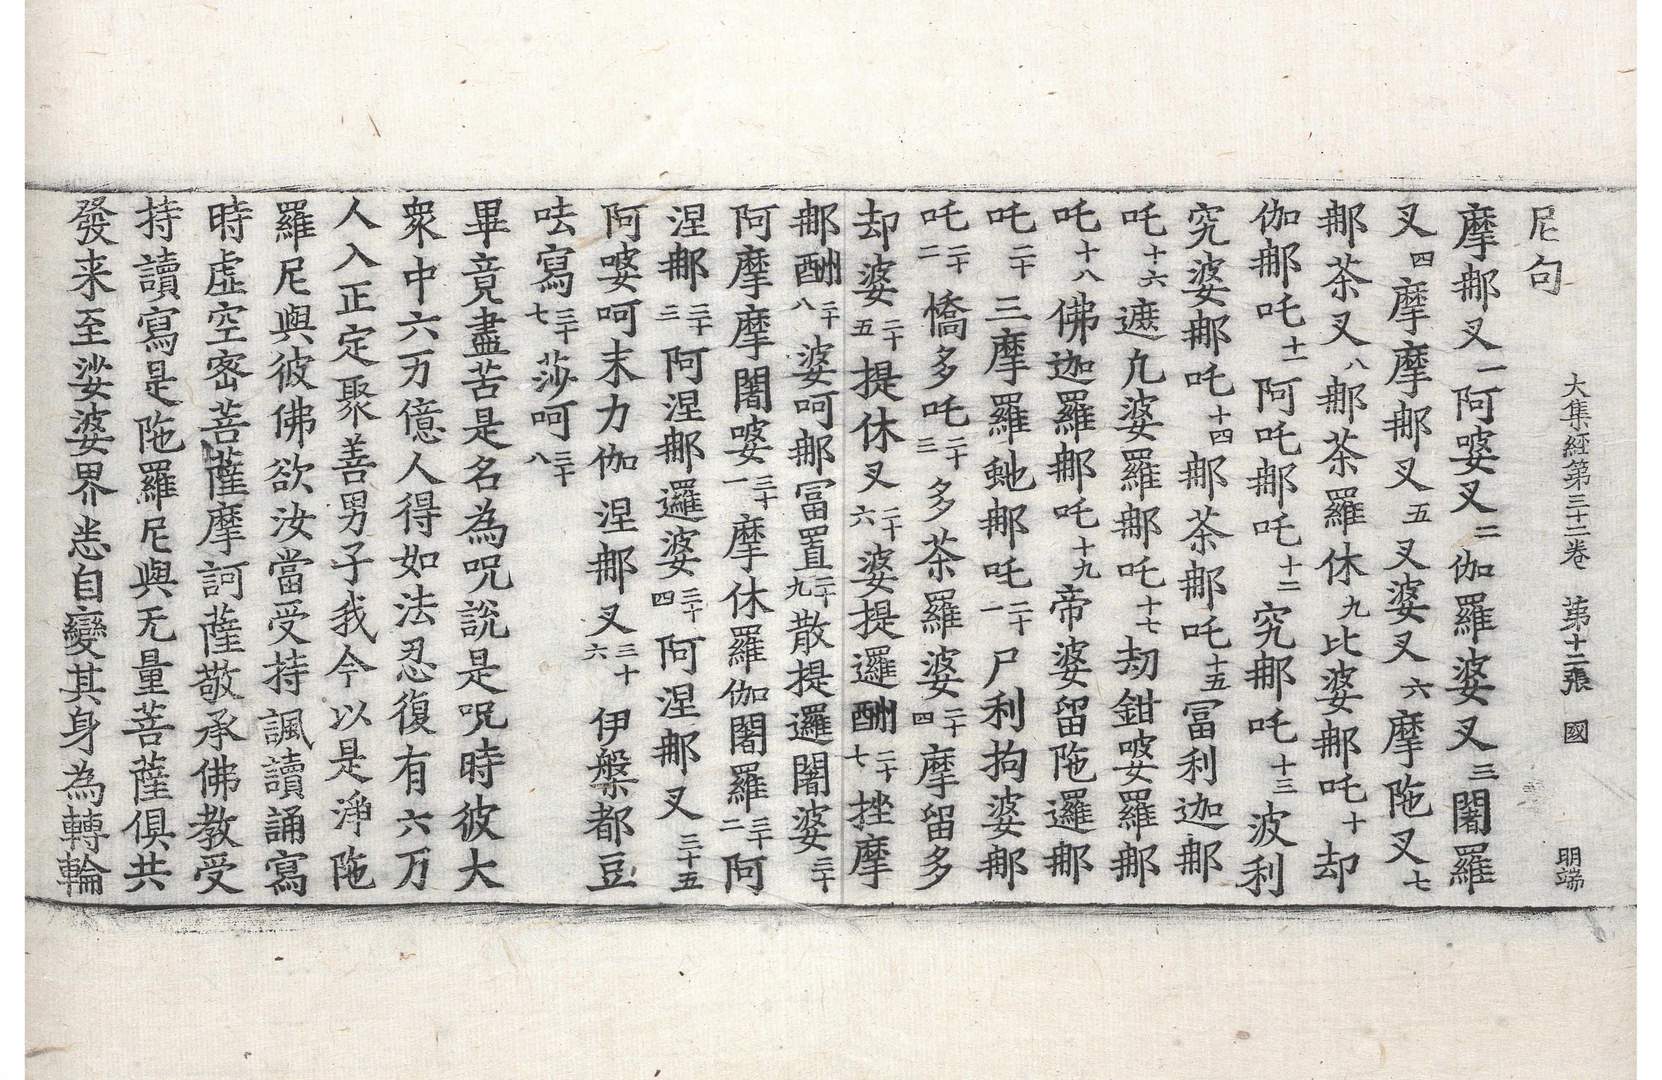 大集經第三十二卷　第十二張　國　明端
尼句
摩那叉一阿婆叉二伽羅婆叉三闍羅
叉四摩摩那叉五叉婆叉六摩陁叉七
那荼叉八那荼羅休九比婆那吒十却
伽那吒十一阿吒那吒十二究那吒十三波利
究婆那吒十四那荼那吒十五冨利迦那
吒十六遮凢婆羅那吒十七劫鉗婆羅那
吒十八佛迦羅那吒十九帝婆留陁邏那
吒二十三摩羅虵那吒二十一尸利拘婆那
吒二十二憍多吒二十三多荼羅婆二十四摩留多
却婆二十五提休叉二十六婆提邏酬二十七挫摩
那酬二十八婆呵那冨置二十九散提邏闍婆三十
阿摩摩闍婆三十一摩休羅伽闍羅三十二阿
涅那三十三阿涅那邏婆三十四阿涅那叉三十五
阿婆呵末力伽涅那叉三十六伊槃都豆
呿寫三十七莎呵三十八
畢竟盡苦是名為呪說是呪時彼大
衆中六万億人得如法忍復有六万
人入正定聚善男子我今以是淨陁
羅尼與彼佛欲汝當受持諷讀誦寫
時虛空密菩薩摩訶薩敬承佛教受
持讀寫是陁羅尼與无量菩薩俱共
發来至娑婆界悉自變其身為轉輪